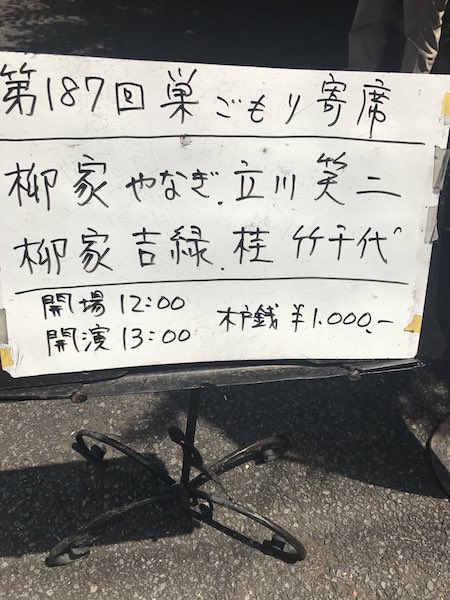 第187回巣ごもり寄席
柳家やなぎ.立川笑二
柳家吉緑.桂竹千代
開場12:00
開演13:00
木戸銭¥1.000.-